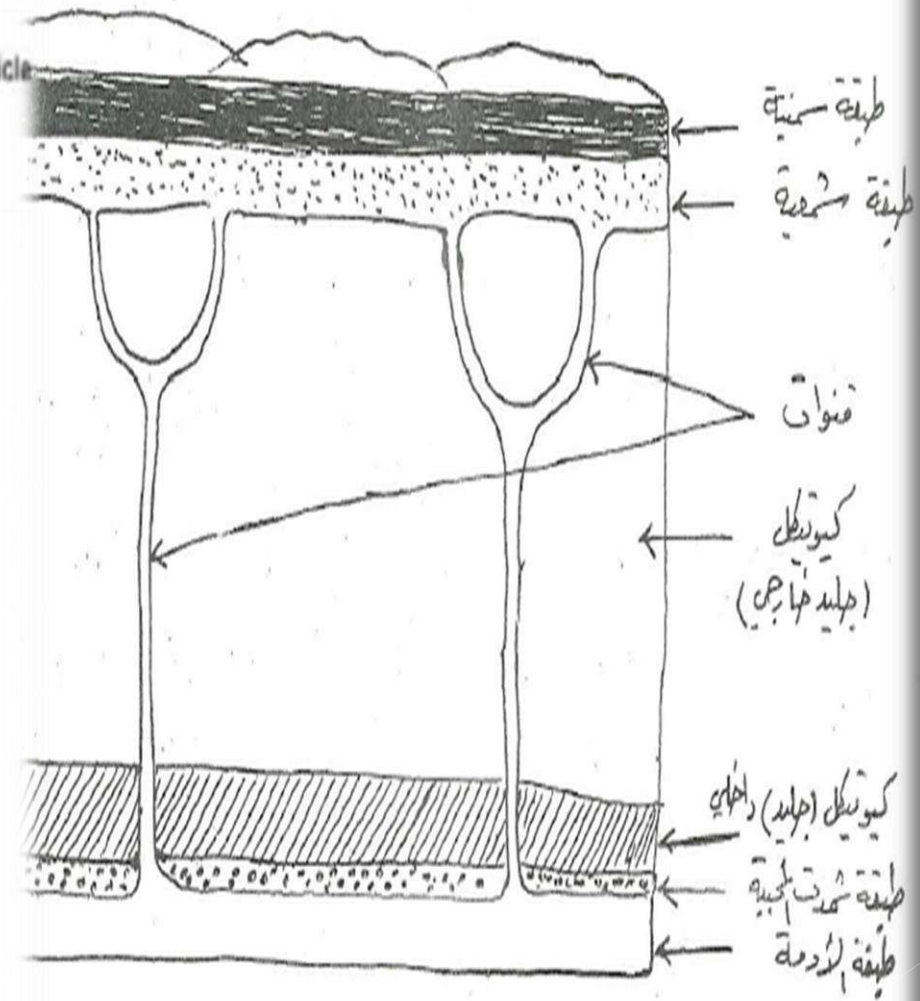 icle
طبقة سمنية
طبقة شمعية
قنوات
كيوتكل
(جليد خارجي)
كيوتكل (جليد) داخلي
طبقة شمدت
طبقة الأدمة